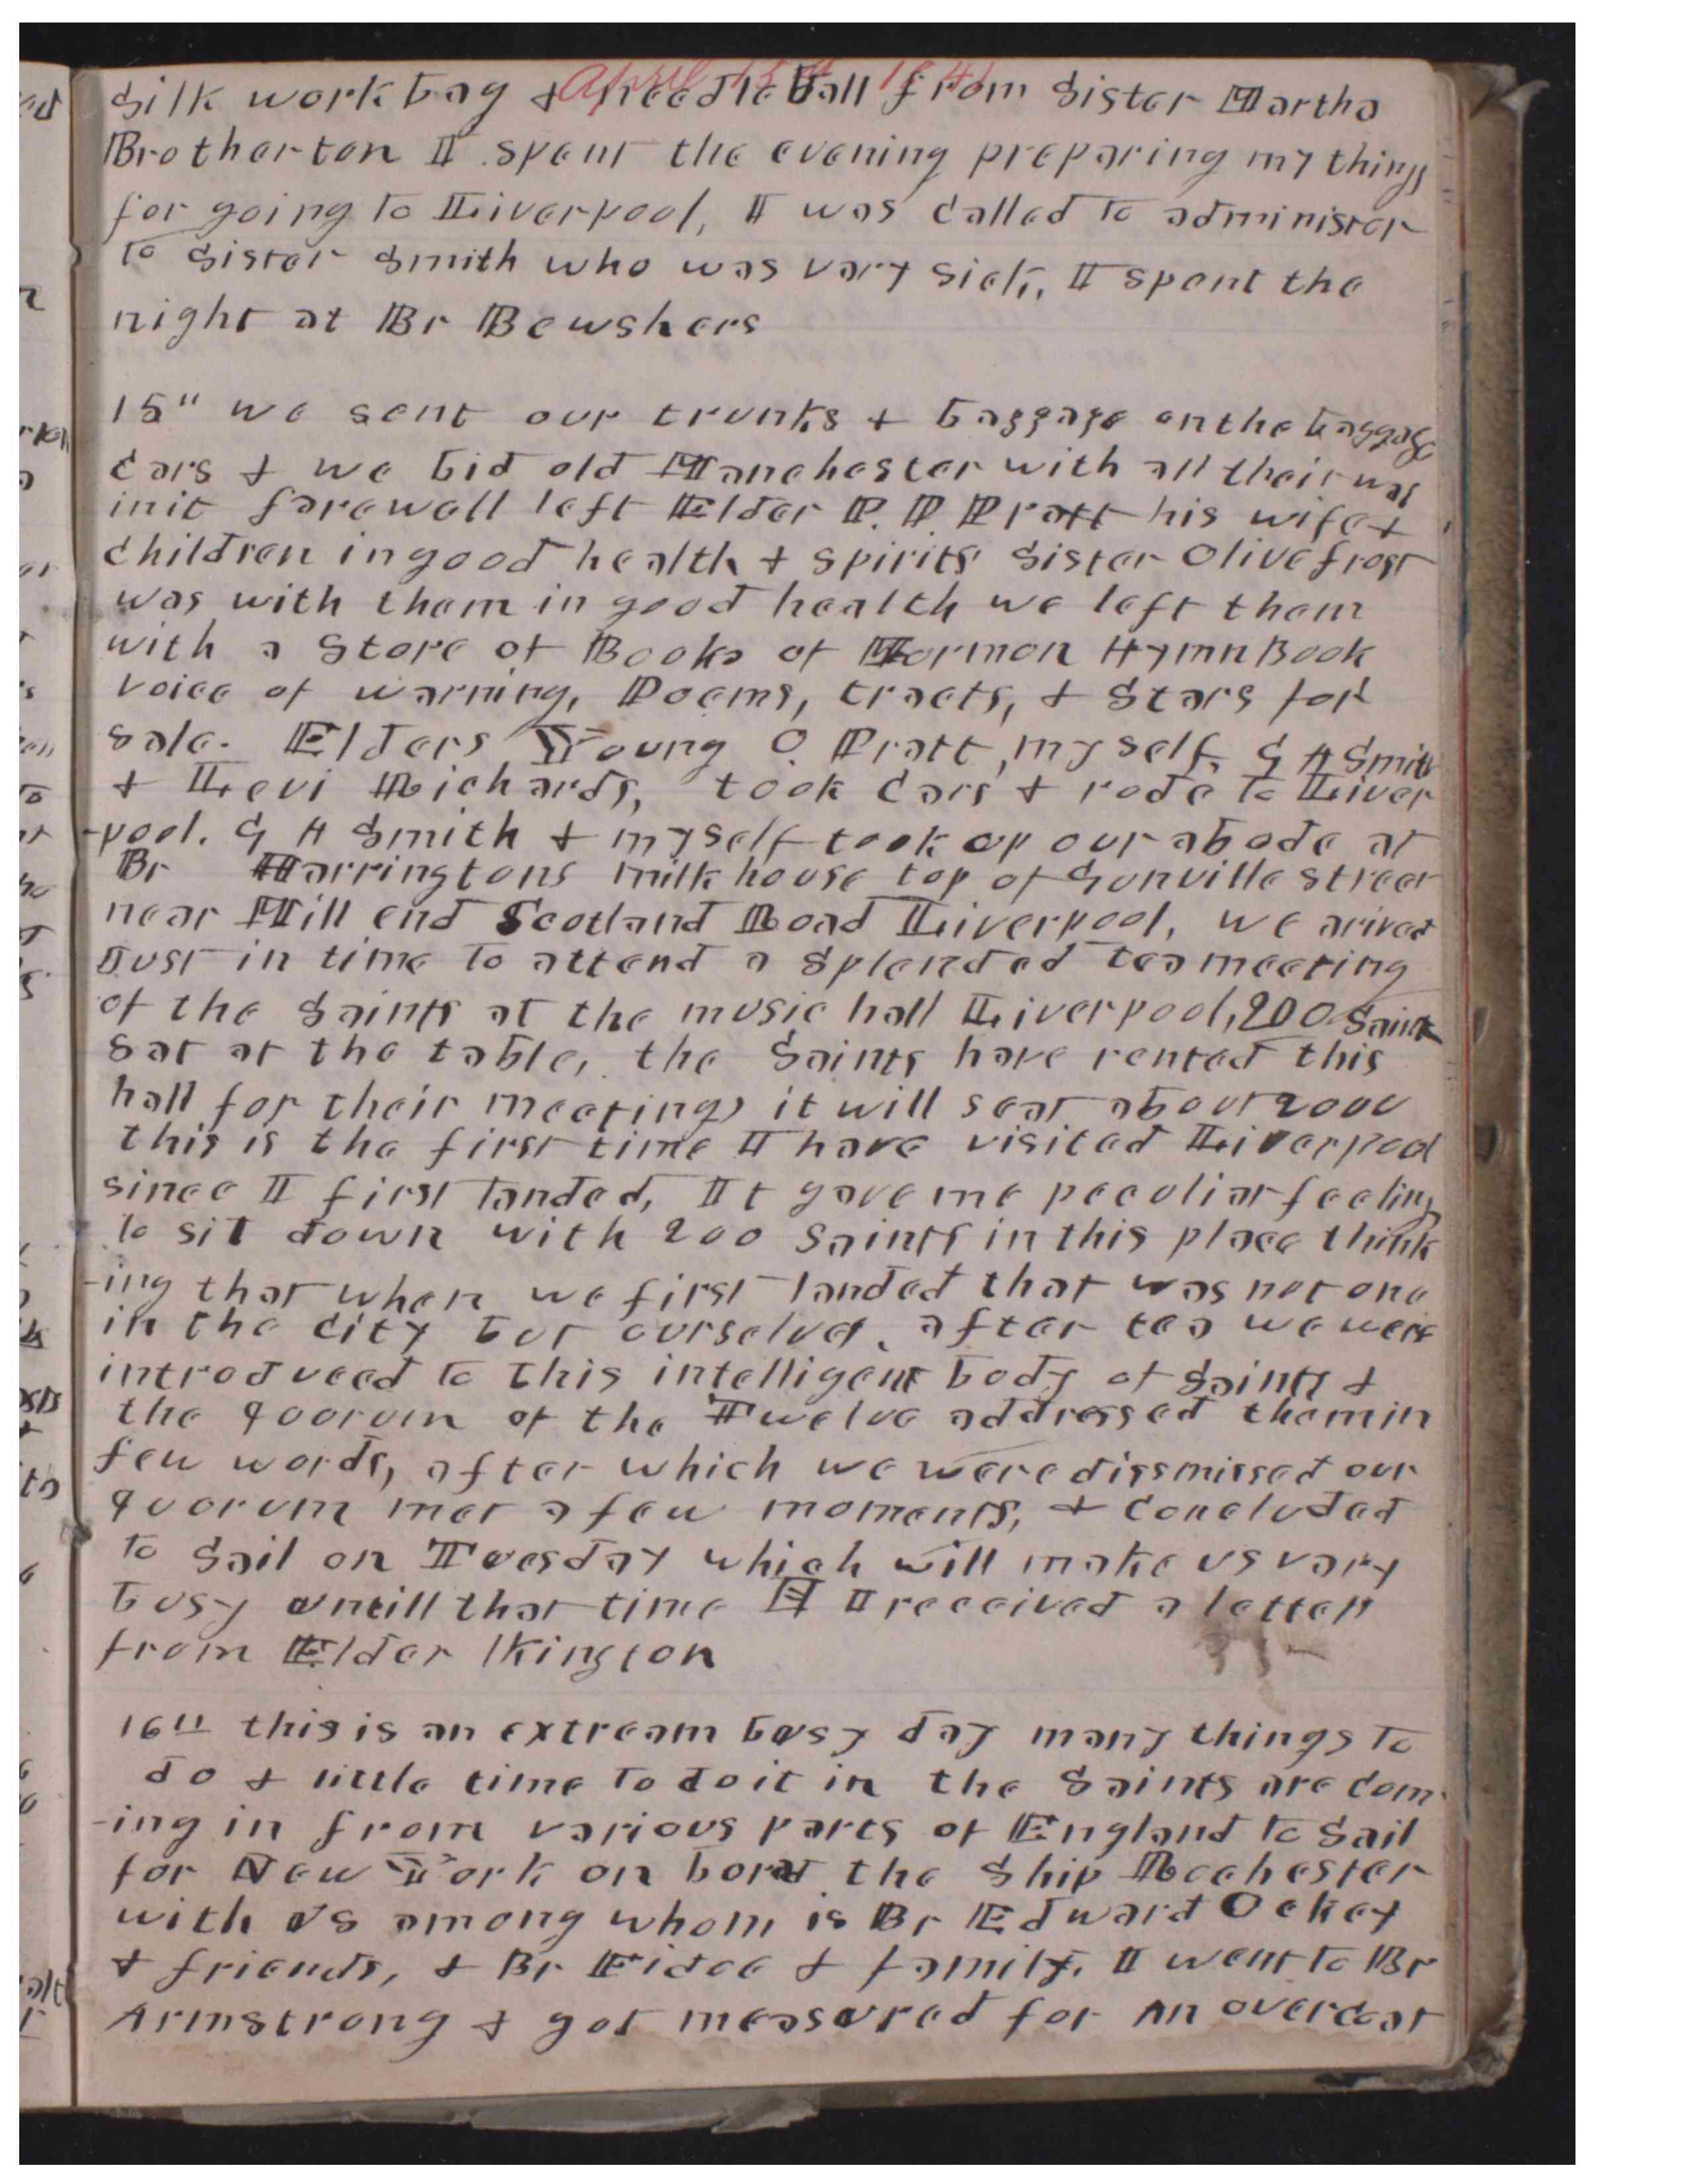 April 15th 1841
Silk work bag & needle ball from Sister Martha
Brotherton I spent the evening preparing my things
for going to Liverpool, I was called to administer
to Sister Smith who was vary sick, I spent the
night at Br Bewshers
15" we sent our trunks & baggage on the baggage
cars & we bid old Manchester with all their was
in it farewell left Elder P. P. Pratt his wife &
children in good health & spirits Sister Olive frost
was with them in good health we left them
with a store of Books of Mormon Hymn Book
voice of warning, Poems, tracts, & Stars for
sale. Elders Young O Pratt, myself, G A Smith
& Levi Richards, took cars & rode to Liver
-pool. G A Smith & myself took up our abode at
Br Harringtons milk house top of Gunville street
near Mill end Scotland Road Liverpool, we arived
Just in time to attend a splended tea meeting
of the Saints at the music hall Liverpool, 200 Saints
sat at the table, the Saints have rented this
hall for their meetings it will seat about 2000
this is the first time I have visited Liverpool
since I first landed, It gave me peculiar feelings
to sit down with 200 Saints in this place think
-ing that when we first landed that was not one
in the city but ourselves. after tea we were
introduced to this intelligent body of Saints &
the quorum of the Twelve addressed them in
few words, after which we were dissmissed our
quorum met a few moments, & concluded
to sail on Tuesday which will make us vary
busy untill that time I received a letter
from Elder Kington
16" this is an extream busy day many things to
do & little time to do it in the Saints are com
-ing in from various parts of England to sail
for New York on bord the Ship Rochester
with us among whom is Br Edward Ockey
& friends, & Br & family. I went to Br
Armstrong & got measured for an overcoat